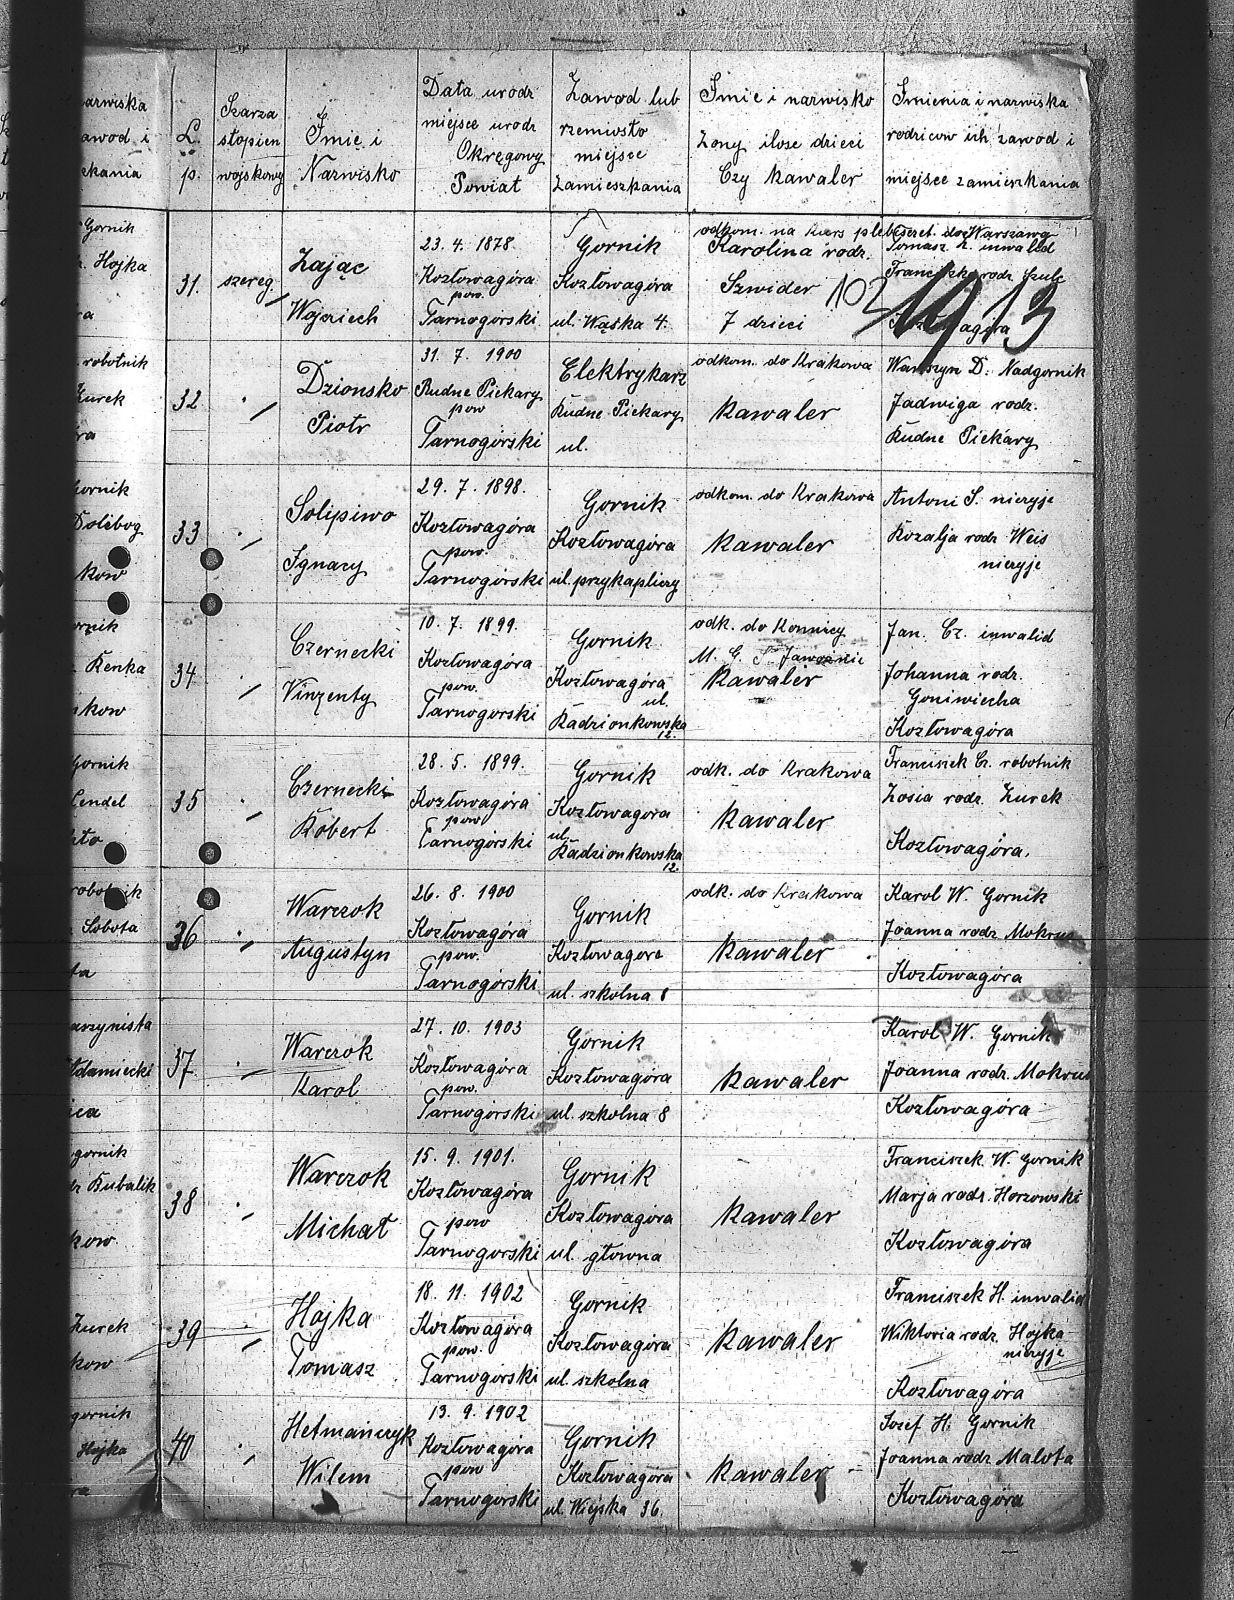 narwiska
zawod i
L.
p.
Szarza
stopien
wojskowy
Imię i
Narwisko
Data urodz
miejsce urodz
Okręgowy
Powiat
Zawod lub
rzemiosto
miejsce
zamieszkania
Imie i narwisko
Zony ilosc dzieci
Czy kawaler
Imienia i narwiska
rodzicow ich zawod i
miejsce zamieszkania
Gornik
Hojka
31.
szereg.
Zając
Wojciech
23. 4. 1878.
Kozłowagóra
pow.
Tarnogórski
Gornik
Kozłowagóra
ul. Wąska 4.
odkom. na kurs plebiscyt. do Warszawy
Karolina rodz.
Szwider
7 dzieci
103
1913
Tomasz Z. inwalid
Franciszka rodz. Szulc
robotnik
Zurek
32.
Dzionsko
Piotr
31. 7. 1900
Rudne Piekary
pow
Tarnogórski
Elektrykarz
Rudne Piekary
ul.
odkom. do Krakowa
kawaler
D. Nadgornik
Jadwiga rodz.
Rudne Piekary
gornik
Dolibog
kow
33
Solipiwo
Ignacy
29. 7. 1898.
Kozłowagóra
pow.
Tarnogórski
Gornik
Kozłowagóra
ul. przykaplicy
odkom. do Krakowa
kawaler
Antoni S. nieżyje
Rozalja rodz Weis
nieżyje
Kenka
kow
34
Czernecki
Vinzenty
10. 7. 1899.
Kozłowagóra
pow.
Tarnogorski
Gornik
Kozłowagóra
ul.
Radzionkowska
12.
odk. do Konnicy
M. G. Jaworznie
kawaler
Jan. Cz. inwalid
Johanna rodz.
Goniwiecha
Kozłowagóra
gornik
Cendel
35
Czernecki
Robert
28. 5. 1899.
Kozłowagóra
pow
Tarnogórski
Gornik
Kozłowagora
ul.
Radzionkowska
12.
odk. do Krakowa
kawaler
Franciszek Cz. robotnik
Zosia rodz. Zurek
Kozłowagóra.
robotnik
Sobota
36
Warczok
Augustyn
26. 8. 1900
Kozłowagóra
pow.
Tarnogórski
Gornik
Kozłowagora
ul. szkolna 8
odk. do Krakowa
kawaler
Karol W. Gornik
Joanna rodz. Mokrus
Kozłowagóra
Adamiecki
37
Warczok
Karol
27. 10. 1903
Kozłowagóra
pow.
Tarnogórski
Gornik
Kozłowagóra
ul. szkolna 8
kawaler
Karol W. Gornik
Joanna rodz. Mokrus
Kozłowagóra
gornik
Kubalik
kow
38
Warczok
Michał
15. 9. 1901.
Kozłowagóra
pow
Tarnogorski
Gornik
Kozłowagóra
ul. głowna
kawaler
Franciszek W. Gornik
Marja rodz. Horzowski
Kozłowagóra
Zurek
kow
39
Hojka
Tomasz
18. 11. 1902
Kozłowagóra
pow.
Tarnogórski
Gornik
Kozłowagóra
ul. szkolna
kawaler
Franciszek H. inwalid
Wiktoria rodz. Hojka
nieżyje
Kozłowagóra
gornik
Hojka
40
Hetmańczyk
Wilem
13. 9. 1902
Kozłowagóra
pow
Tarnogorski
Gornik
Kozłowagóra
ul. Wiejska 36.
kawaler
Jozef H. Gornik
Joanna rodz Malota
Kozłowagóra